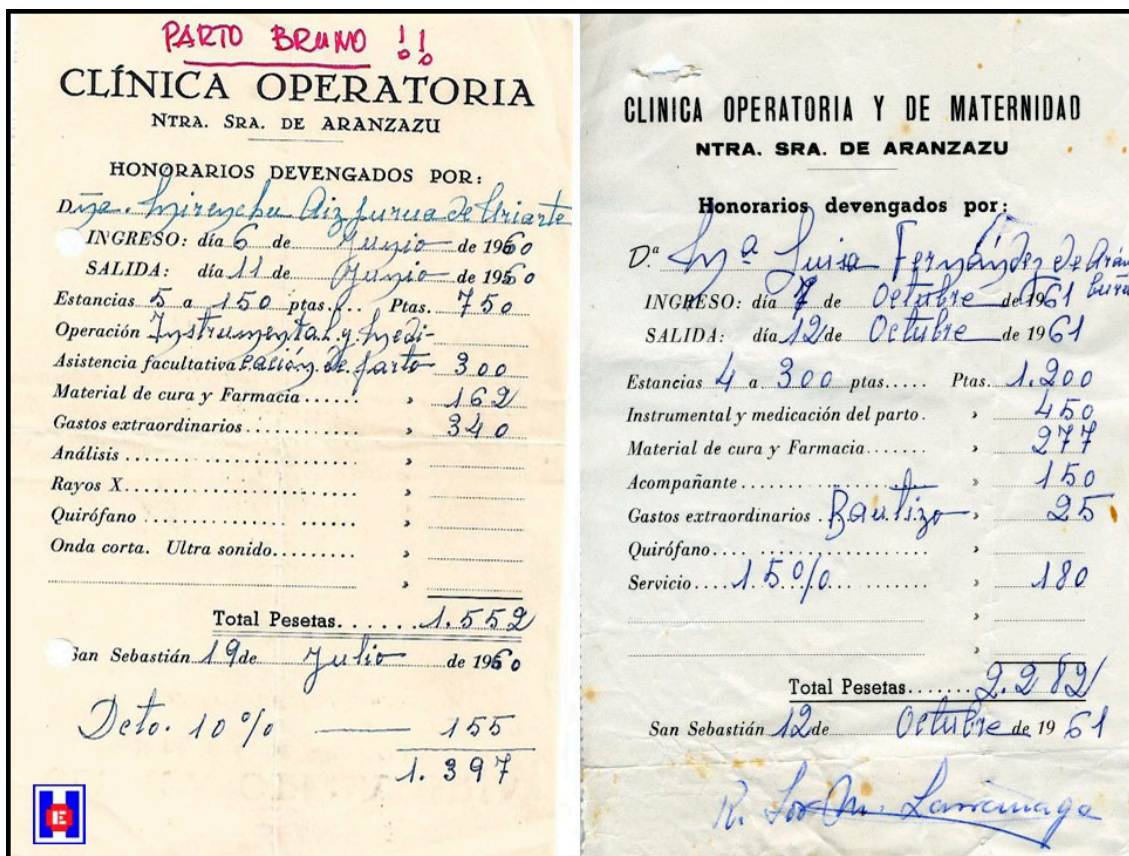 PARTO BRUNO !!
CLÍNICA OPERATORIA
NTRA. SRA. DE ARANZAZU
HONORARIOS DEVENGADOS POR:
Dña. Mirenchu Aizpurua de Uriarte
INGRESO: día 6 de Junio de 1960
SALIDA: día 11 de Junio de 1960
Estancias 5 a 150 ptas.... Ptas. 750
Operación Instrumental y medi-
Asistencia facultativa cación de parto 300
Material de cura y Farmacia...... » 162
Gastos extraordinarios............ » 340
Análisis........................ »
Rayos X........................ »
Quirófano...................... »
Onda corta. Ultra sonido......... »
»
Total Pesetas....... 1.552
San Sebastián 19 de Julio de 1960
Dcto. 10% — 155
1.397
E
CLINICA OPERATORIA Y DE MATERNIDAD
NTRA. SRA. DE ARANZAZU
Honorarios devengados por:
D.ª Mª Luisa Fernández de Arám
buru
INGRESO: día 7 de Octubre de 1961
SALIDA: día 12 de Octubre de 1961
Estancias 4 a 300 ptas..... Ptas. 1.200
Instrumental y medicación del parto. » 450
Material de cura y Farmacia....... » 277
Acompañante..................... » 150
Gastos extraordinarios. Bautizo » 25
Quirófano...................... »
Servicio.... 15%............ » 180
»
»
Total Pesetas....... 2.282
San Sebastián 12 de Octubre de 1961
M. Larrañaga